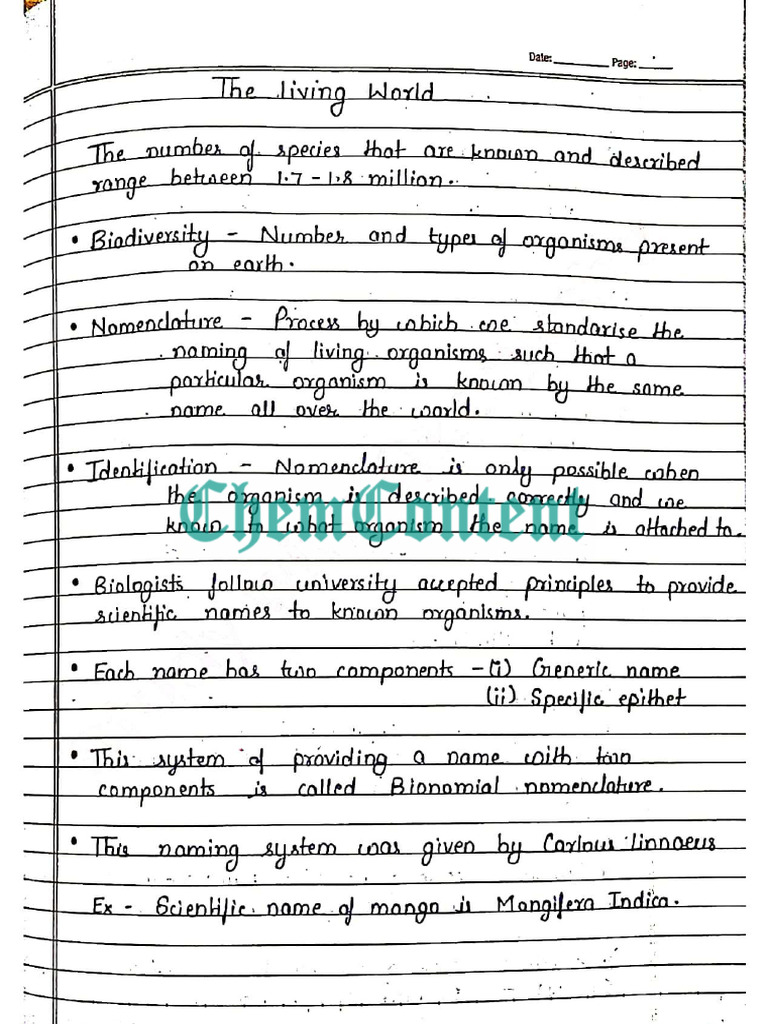 Date: Page:
The living World
The number of species that are known and described
range between 1.7 - 1.8 million.
• Biodiversity - Number and types of organisms present
on earth.
• Nomenclature - Process by which we standarise the
naming of living organisms such that a
particular organism is known by the same
name all over the world.
• Identification - Nomenclature is only possible when
the organism is described correctly and we
know to what organism the name is attached to.
ChemContent
• Biologists follow university accepted principles to provide
scientific names to known organisms.
• Each name has two components - (i) Generic name
(ii) Specific epithet
• This system of providing a name with two
components is called Bionomial nomenclature.
• This naming system was given by Carlous linnaeus
Ex - Scientific name of mango is Mangifera Indica.